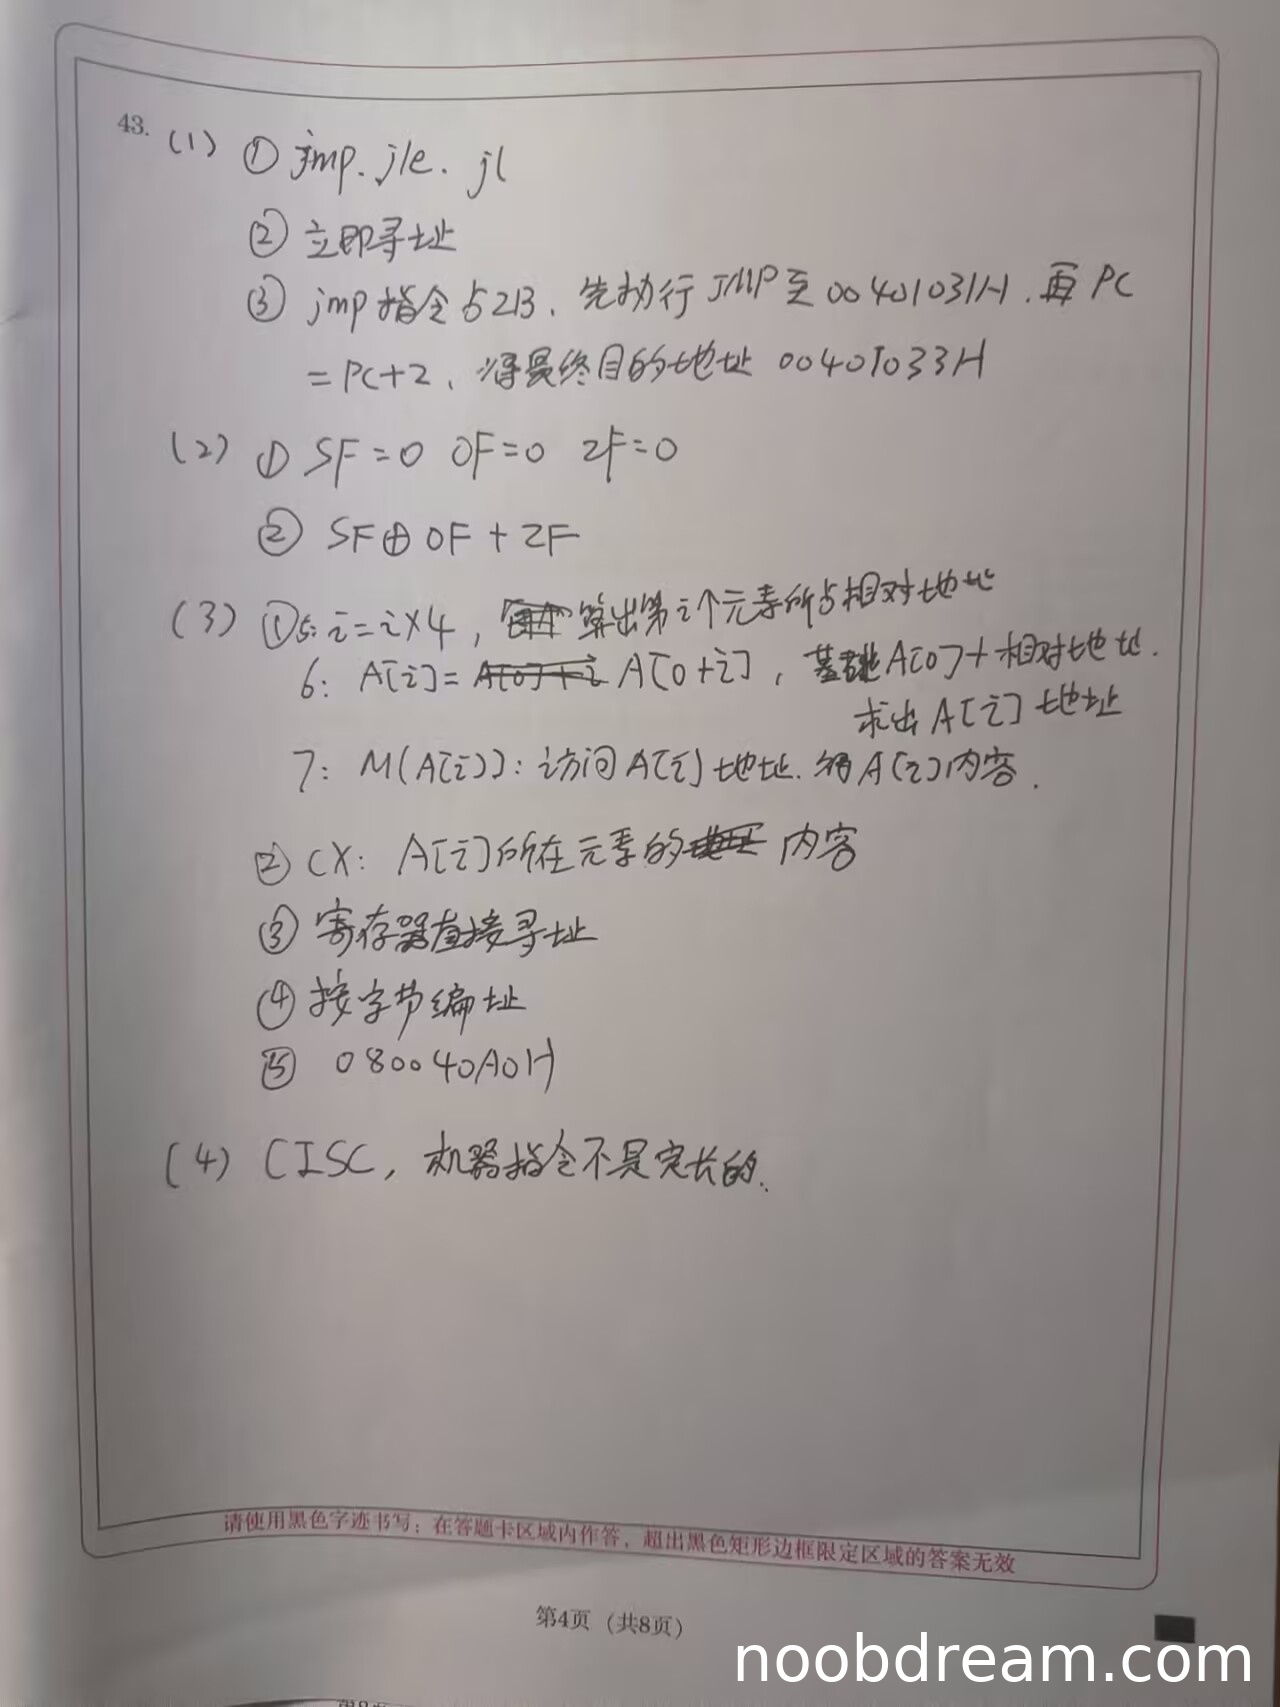 43. (1) ① jmp. jle. jl
② 立即寻址
③ jmp指令占2B, 先执行JMP至00401031H. 再PC
=PC+2, 得最终目的地址 00401033H
(2) ① SF=0 OF=0 ZF=0
② SF⊕OF+ZF
(3) ①5: i=i×4, 算出第i个元素所占相对地址
6: A[i]= A[0+i], 基址A[0]+相对地址.
求出A[i]地址
7: M(A[i]): 访问A[i]地址. 得A[i]内容.
② CX: A[i]所在元素的 内容
③ 寄存器直接寻址
④ 按字节编址
⑤ 080040A0H
(4) CISC, 机器指令不是定长的.
请使用黑色字迹书写;在答题卡区域内作答,超出黑色矩形边框限定区域的答案无效
第4页(共8页)
noobdream.com